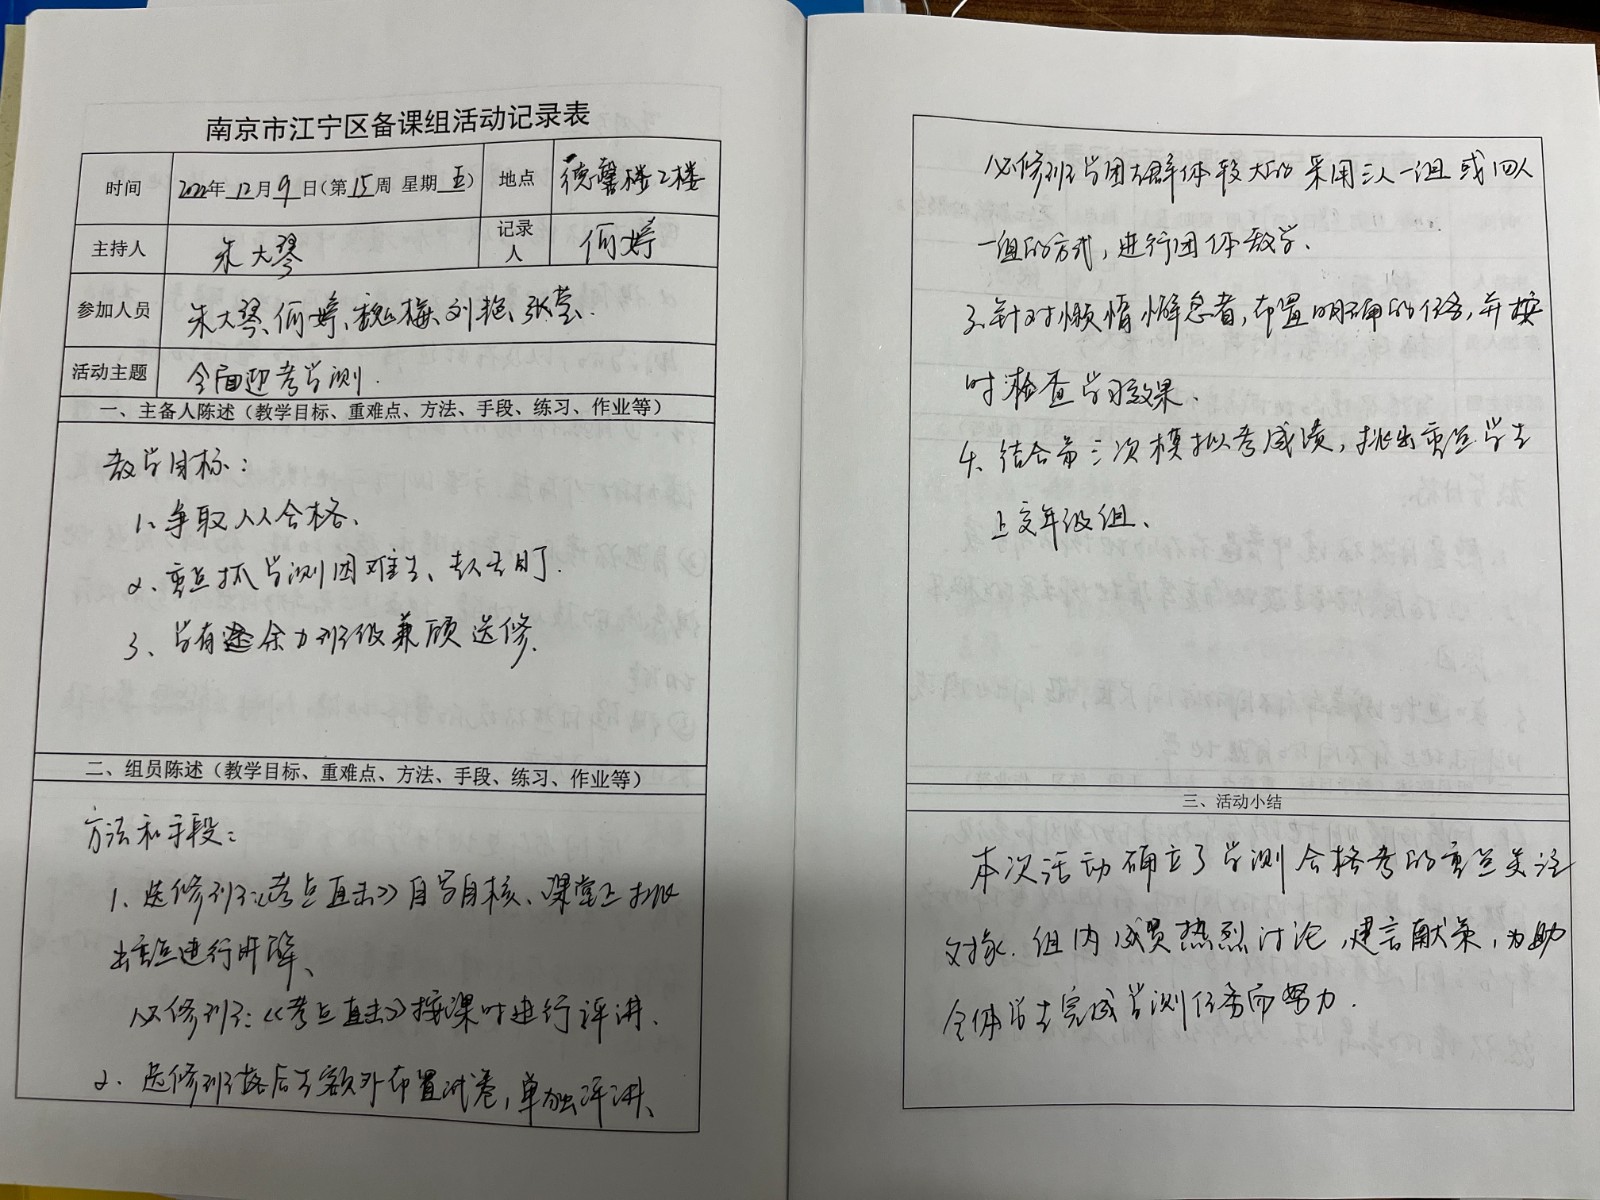 南京市江宁区备课组活动记录表
时间 2022年 12月 9日(第 15周 星期 五) 地点 德馨楼2楼
主持人 朱大琴 记录人 何婷
参加人员 朱大琴、何婷、魏梅、刘艳、张莹.
活动主题 全面迎考学测.
一、主备人陈述（教学目标、重难点、方法、手段、练习、作业等）
教学目标：
1、争取人人合格、
2、重点抓学测困难生、专人盯.
3、学有余力班级兼顾选修.
二、组员陈述（教学目标、重难点、方法、手段、练习、作业等）
方法和手段：
1、选修班：《考点直击》自写自核、课堂上挑
出重点进行讲解、
必修班：《考点直击》按课时进行评讲、
2、选修班落后生额外布置试卷，单独评讲、
必修班学困生群体较大的采用三人一组或四人
一组的方式，进行团体教学.
3、针对懒惰懈怠者，布置明确的任务，并按
时检查学习效果、
4、结合前三次模拟考成绩，挑出重点学生
上交年级组、
三、活动小结
本次活动确立了学测合格考的重点关注
对象. 组内成员热烈讨论，建言献策，为助
全体学生完成学测任务而努力.